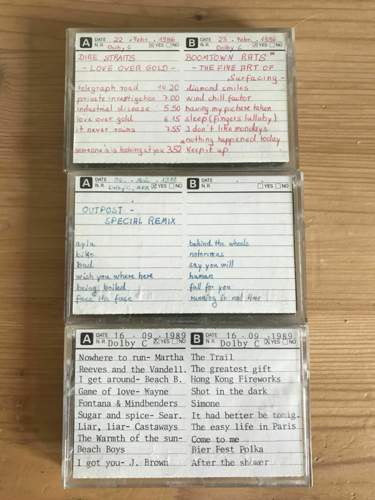 A DATE 22 . Febr. . 1986 B DATE 23 . Febr. . 1986
N.R. Dolby C YES NO N.R. Dolby C YES NO
DIRE STRAITS BOOMTOWN RATS
- LOVE OVER GOLD - - THE FINE ART OF
Surfacing -
telegraph road 14.20 diamond smiles
private investigation 7.00 wind chill factor
industrial disease 5.50 having my picture taken
love over gold 6.15 sleep (fingers lullaby)
it never rains 7.55 I don't like mondays
nothing happened today
someone's looking at you 3.52 Keep it up
A DATE B DATE
N.R. YES NO N.R. YES NO
OUTPOST -
SPECIAL REMIX
behind the wheels
notorious
bad say you will
wish you where here human
being boiled fall for you
face the face running in
A DATE 16 . 09 . 1989 B DATE 16 . 09 . 1989
N.R. Dolby C YES NO N.R. Dolby C YES NO
Nowhere to run- Martha The Trail
Reeves and the Vandell. The greatest gift
I get around- Beach B. Hong Kong Fireworks
Game of love- Wayne Shot in the dark
Fontana & Mindbenders Simone
Sugar and spice- Sear. It had better be tonig.
Liar, liar- Castaways The easy life in Paris
The Warmth of the sun- Come to me
Beach Boys Bier Fest Polka
I got you- J. Brown After the shower